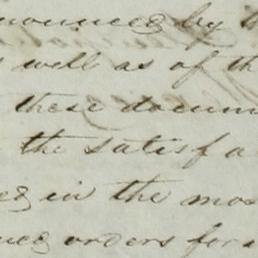 nounced by
well as of th
these docum
the satisfa
ed in the mos
ued orders for